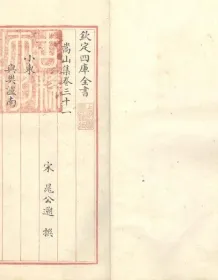 欽定四庫全書
嵩山集卷三十一
宋 晁公遡 撰
小東
與